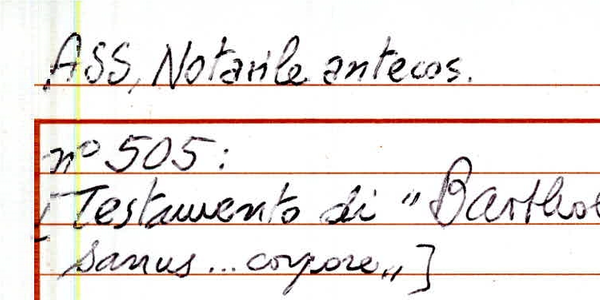 ASS, Notarile antecos.
nº 505:
[Testamento di "Barthol
sanus... corpore"]